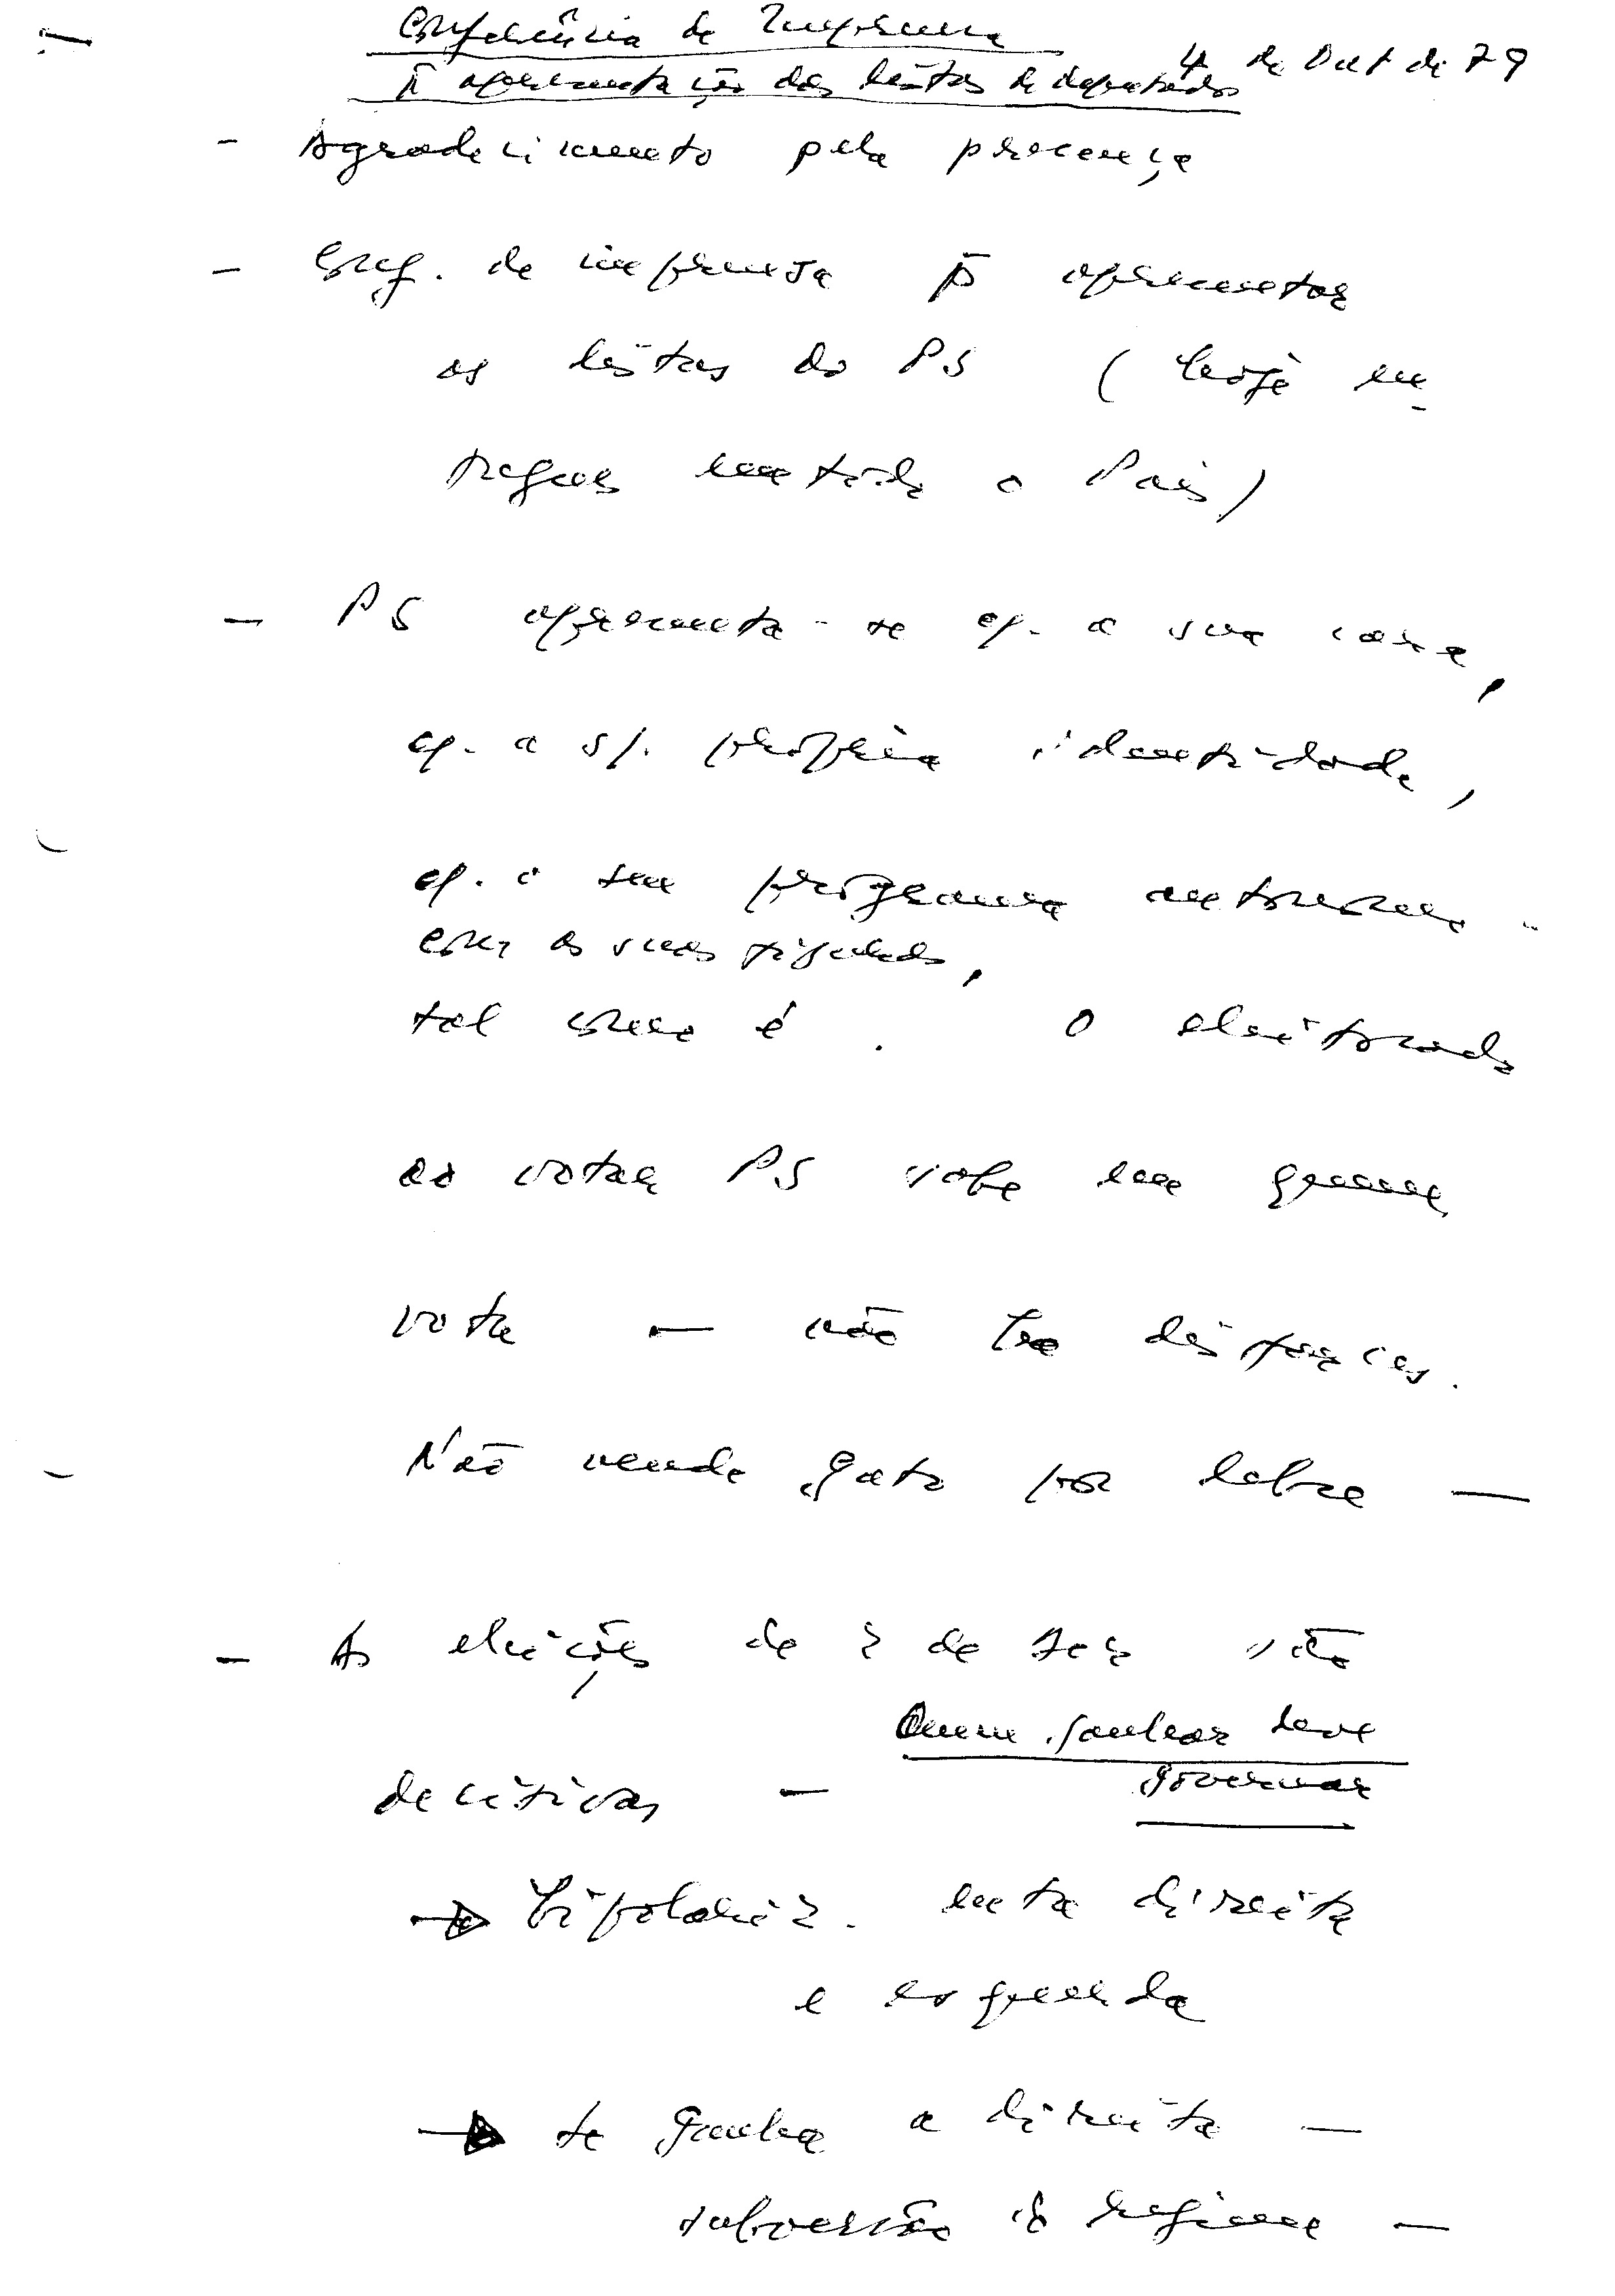 Conferência de Imprensa
4 de Out de 79
P̄ apresentação das listas de deputados
- Agradecimento pela presença
- Conf. de imprensa p̄ apresentar
as listas do PS (hoje en-
tregues em todo o País)
- PS apresenta-se c/. a sua cara,
c/. a s/. própria identidade,
c/. o seu programa autónomo -
com as suas figuras,
tal como é. O eleitorado
ao votar PS sabe em quem
vota — não há disfarces.
Não vende gato por lebre —
- As eleições de 2 de Dez são
Quem ganhar deve
decisivas — governar
→ bipolariz. entre direita
e esquerda
→ se ganha a direita —
subversão do regime —